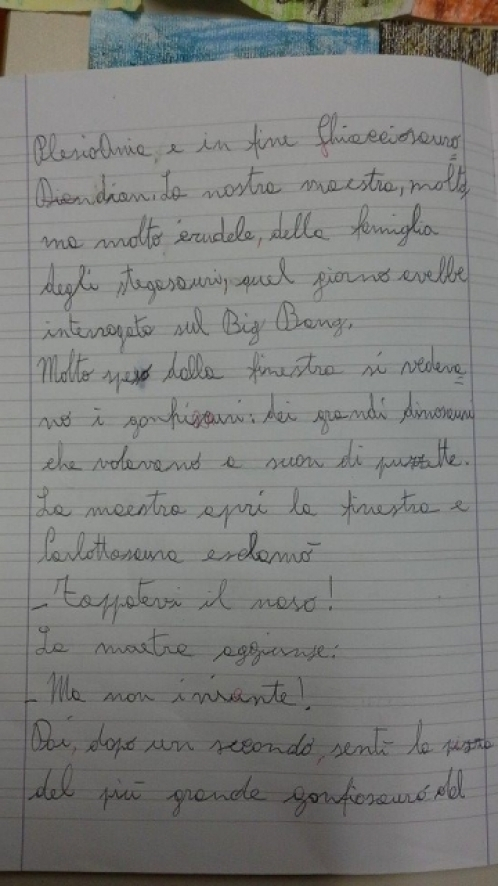 PlesioAnia, e in fine Ghiacciosauro
Diandian. La nostra maestra, molto,
ma molto crudele, della famiglia
degli stegosauri, quel giorno avebbe
interrogato sul Big Bang.
Molto spesso dalla finestra si vedeva=
no i gonfisauri: dei grandi dinosauri
che volavano a suon di puzzette.
La maestra aprì la finestra e
Carlottosaura esclamò
- Tappatevi il naso!
La maetra aggiunse:
- Ma non inivante!
Poi, dopo un secondo, sentì la puzza
del più grande gonfiosauro del